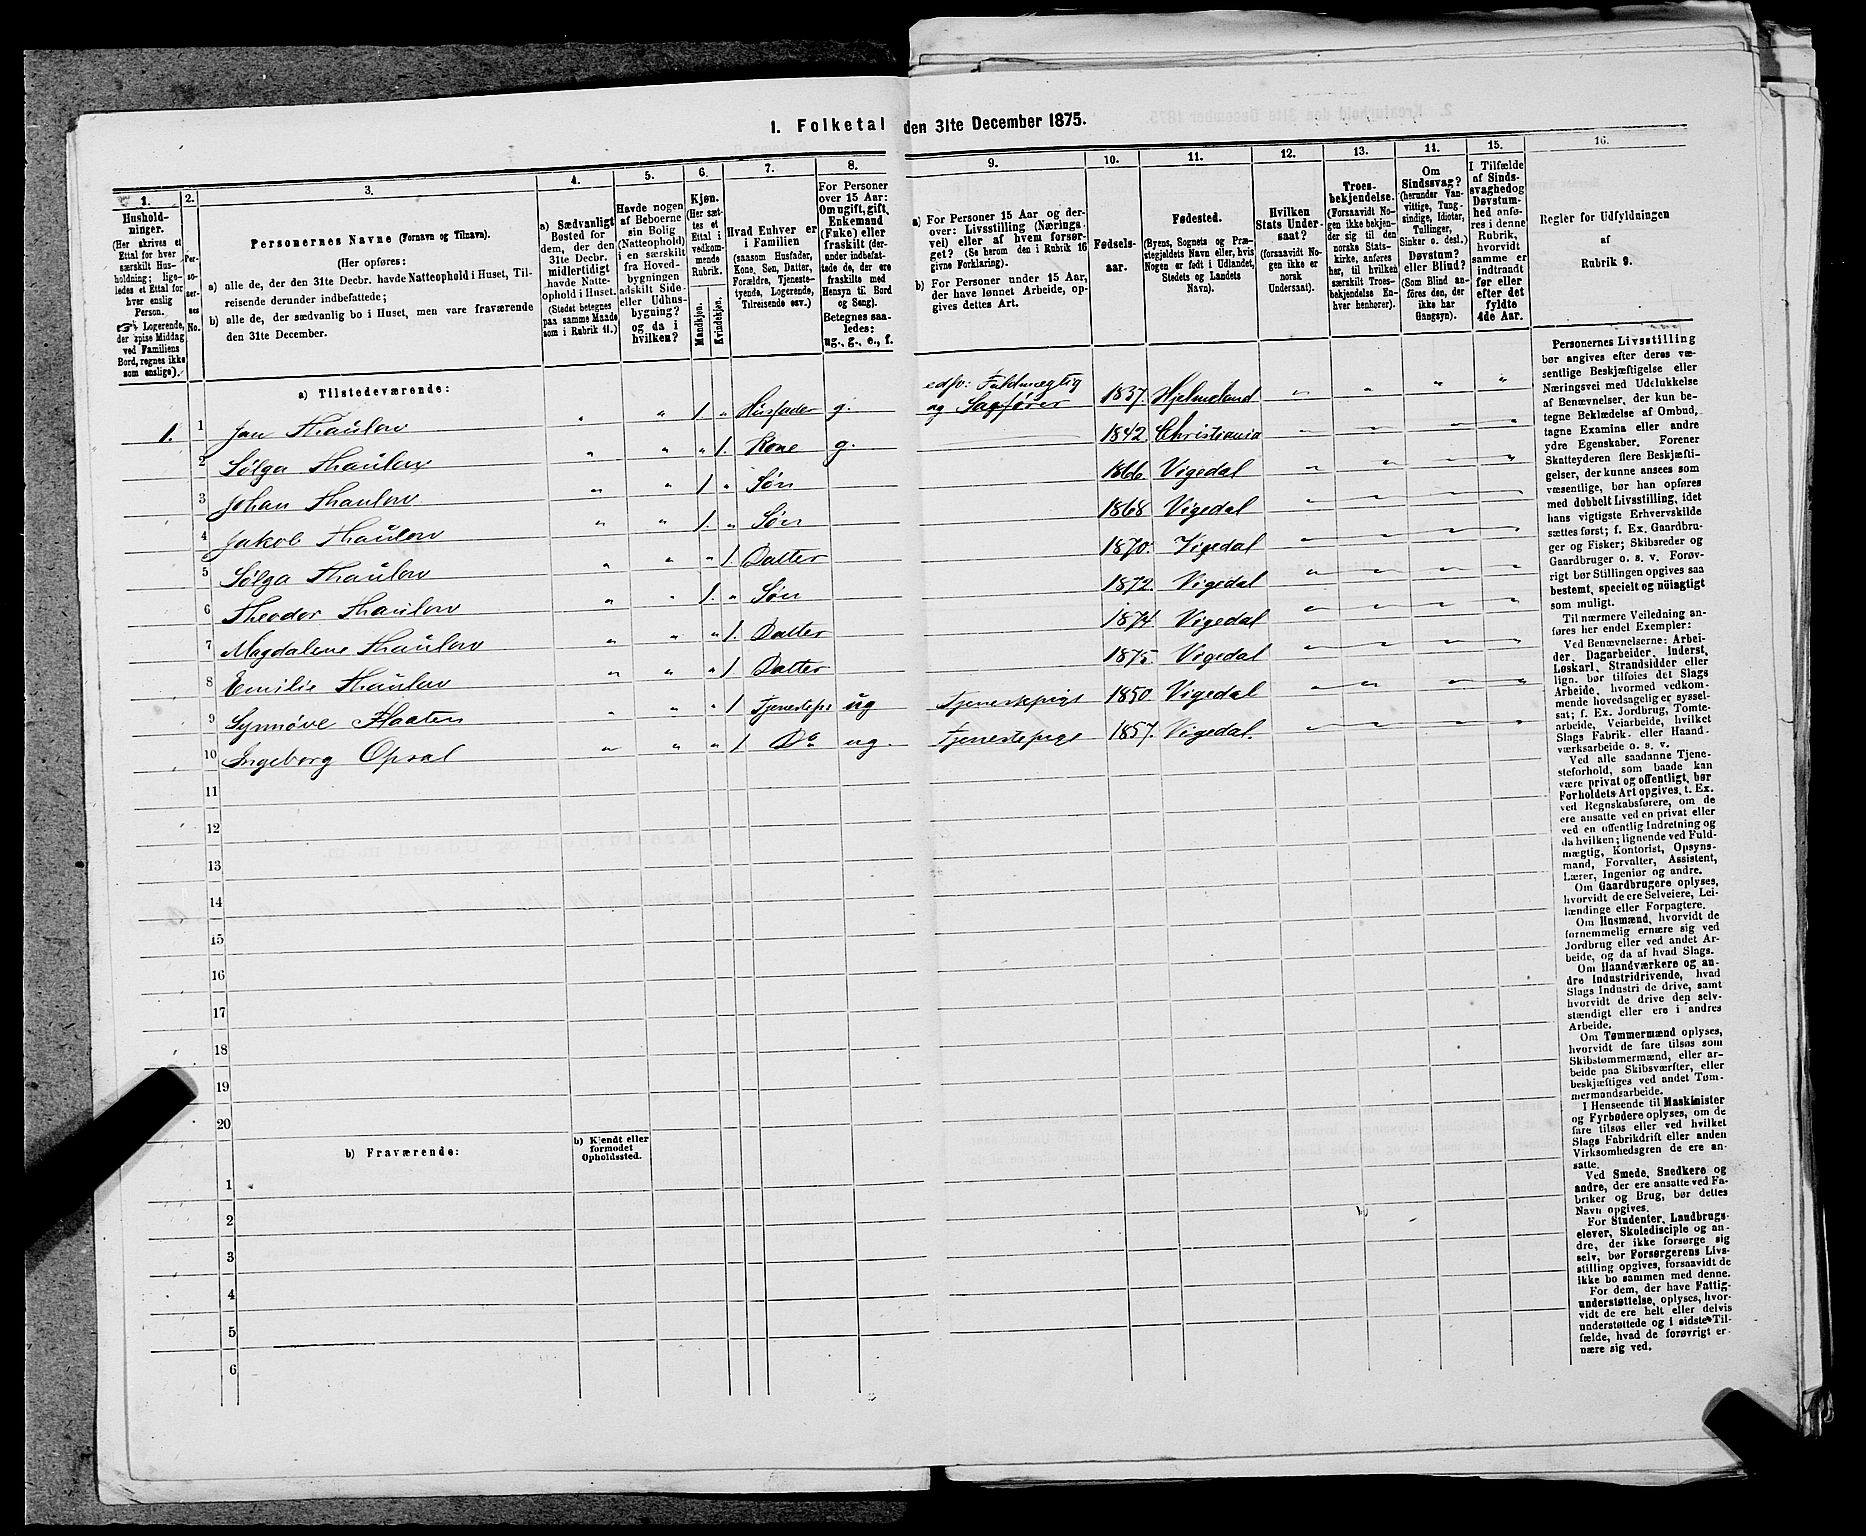 I. Folketal den 31te December 1875.
1. 2. 3. 4. 5. 6. 7. 8. 9. 10. 11. 12. 13. 14. 15. 16.
Hushold-
ninger.
(Her skrives et
Ettal for hver
særskilt Hus-
holdning; lige-
ledes et Ettal for
hver enslig
Person.
☞ Logerende,
der spise Middag
ved Familiens
Bord, regnes ikke
som enslige).
Per-
so-
ner-
nes
No.
Personernes Navne (Fornavn og Tilnavn).
(Her opføres:
a) alle de, der den 31te Decbr. havde Natteophold i Huset, Til-
reisende derunder indbefattede;
b) alle de, der sædvanlig bo i Huset, men vare fraværende
den 31te December.
a) Sædvanligt
Bosted for
dem, der den
31te Decbr.
midlertidigt
havde Natte-
ophold i Huset.
(Stedet betegnes
paa samme Maade
som i Rubrik 11.)
Havde nogen
af Beboerne
sin Bolig
(Natteophold)
i en særskilt
fra Hoved-
bygningen
adskilt Side-
eller Udhus-
bygning?
og da i
hvilken?
Kjøn.
(Her sæt-
tes et
Ettal i
vedkom-
mende
Rubrik.
Mandkjøn.
Kvindekjøn.
Hvad Enhver er
i Familien
(saasom Husfader,
Kone, Søn, Datter,
Forældre, Tjeneste-
tyende, Logerende,
Tilreisende osv.)
For Personer
over 15 Aar:
Om ugift, gift,
Enkemand
(Enke) eller
fraskilt (der-
under indbefat-
tede de, der ere
fraskilte med
Hensyn til Bord
og Seng).
Betegnes saa-
ledes:
ug., g., e., f.
a) For Personer 15 Aar og der-
over: Livsstilling (Nærings-
vei) eller af hvem forsør-
get? (Se herom den i Rubrik 16
givne Forklaring).
b) For Personer under 15 Aar,
der have lønnet Arbeide, op-
gives dettes Art.
Fødsels-
aar.
Fødested.
(Byens, Sognets og Præ-
stegjeldets Navn eller, hvis
Nogen er født i Udlandet,
Stedets og Landets
Navn).
Hvilken
Stats Under-
saat?
(forsaavidt No-
gen ikke er
norsk
Undersaat).
Troes-
bekjendelse.
(Forsaavidt No-
gen ikke bekjen-
der sig til den
norske Stats-
kirke, anføres
her, til hvilken
særskilt Troes-
bekjendelse En-
hver henhører).
Om
Sindssvag?
(herunder Van-
vittige, Tung-
sindige, Idioter,
Sinker o. desl.)
Døvstum?
eller Blind?
(Som Blind an-
føres den, der
ikke har
Gangsyn).
I Tilfælde
af Sinds-
svaghed og
Døvstum-
hed anfø-
res i denne
Rubrik,
hvorvidt
samme er
indtraadt
før eller
efter det
fyldte
4de Aar.
Regler for Udfyldningen
af
Rubrik 9.
a) Tilstedeværende:
1. 1 Jan Thaulow " " 1. " Husfader g. edsv: Fuldmægtig og Sagfører 1837. Hjelmeland " " " "
2 Sølga Thaulow " " " 1. Kone g. 1842. Christiania
3 Johan Thaulow " " 1 " Søn 1866. Vigedal
4 Jakob Thaulow " " 1. " Søn 1868 Vigedal
5 Sølga Thaulow " " " 1. Datter 1870. Vigedal
6 Theodor Thaulow " " 1. " Søn 1872. Vigedal
7 Magdalene Thaulow " " " 1. Datter 1874. Vigedal
8 Emilie Thaulow " " " 1 Datter 1875. Vigedal
9 Synnøve Flaaten " " " 1 Tjenestepi ug Tjenestepige 1850. Vigedal
10 Ingeborg Opsal " " " 1. Do ug. Tjenestepige 1857. Vigedal.
11
12
13
14
15
16
17
18
19
20
b) Fraværende:
b) Kjendt eller
formodet
Opholdssted.
1
2
3
4
5
6
Personernes Livsstilling
bør angives efter deres væ-
sentlige Beskjæftigelse eller
Næringsvei med Udelukkelse
af Benævnelser, der kun be-
tegne Beklædelse af Ombud,
tagne Examina eller andre
ydre Egenskaber. Forener
Skatteyderen flere Beskjæfti-
gelser, der kunne ansees som
væsentlige, bør han opføres
med dobbelt Livsstilling, idet
hans vigtigste Erhvervskilde
sættes først; f. Ex. Gaardbru-
ger og Fisker; Skibsreder og
Gaardbruger o. s. v. Forøv-
rigt bør Stillingen opgives saa
bestemt, specielt og nøiagtigt
som muligt.
Til nærmere Veiledning an-
føres her endel Exempler:
Ved Benævnelserne: Arbei-
der, Dagarbeider, Inderst,
Løskarl, Strandsidder eller
lign. bør tilføies det Slags
Arbeide, hvormed vedkom-
mende hovedsagelig er syssel-
sat; f. Ex. Jordbrug, Tomte-
arbeide, Veiarbeide, hvilket
Slags Fabrik- eller Haand-
værksarbeide o. s. v.
Ved alle saadanne Tjene-
steforhold, som baade kan
være privat og offentligt, bør
Forholdets Art opgives, t. Ex.
ved Regnskabsførere, om de
ere ansatte ved en privat eller
ved en offentlig Indretning og
da hvilken; lignende ved Fuld-
mægtig, Kontorist, Opsyns-
mand, Forvalter, Assistent,
Lærer, Ingeniør og andre.
Om Gaardbrugere oplyses,
hvorvidt de ere Selveiere, Lei-
lændinge eller Forpagtere.
Om Husmænd, hvorvidt de
fornemmelig ernære sig ved
Jordbrug eller ved andet Ar-
beide, og da af hvad Slags.
Om Haandværkere og an-
dre Industridrivende, hvad
Slags Industri de drive, samt
hvorvidt de drive den selv-
stændigt eller ere i andres
Arbeide.
Om Tømmermænd oplyses,
hvorvidt de fare tilsøs som
Skibstømmermænd, eller ar-
beide paa Skibsværfter, eller
beskjæftiges ved andet Tøm-
mermandsarbeide.
I Henseende til Maskinister
og Fyrbødere oplyses, om de
fare tilsøs eller ved hvilket
Slags Fabrikdrift eller anden
Virksomhedsgren de ere an-
satte.
Ved Smede, Snedkere og
andre, der ere ansatte ved Fa-
briker og Brug, bør dettes
Navn opgives.
For Studenter, Landbrugs-
elever, Skoledisciple og an-
dre, der ikke forsørge sig
selv, bør Forsørgerens Livs-
stilling opgives, forsaavidt de
ikke bo sammen med denne.
For dem, der have Fattig-
understøttelse, oplyses, hvor-
vidt de ere helt eller delvis
understøttede og i sidste Til-
fælde, hvad de forøvrigt er-
nære sig ved.